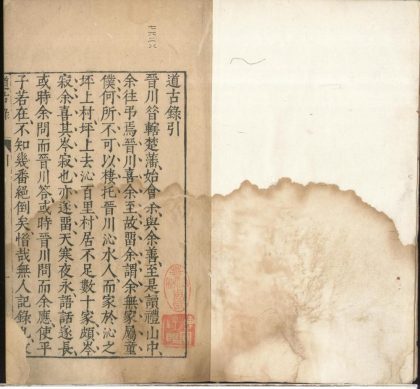 道古錄引
晉川昔轄楚藩始會余與余善至是讀禮山中
余往弔焉晉川喜余至故畱余謂余無家屬童
僕何所不可以棲托晉川沁水人而家於沁之
坪上村坪上去沁百里村居不足數十家頗岑
寂余喜其岑寂也亦遂畱天寒夜永語話遂長
或時余問而晉川答或時晉川問而余應使平
子若在不知幾番絕倒矣惜哉無人記錄
道古錄 引